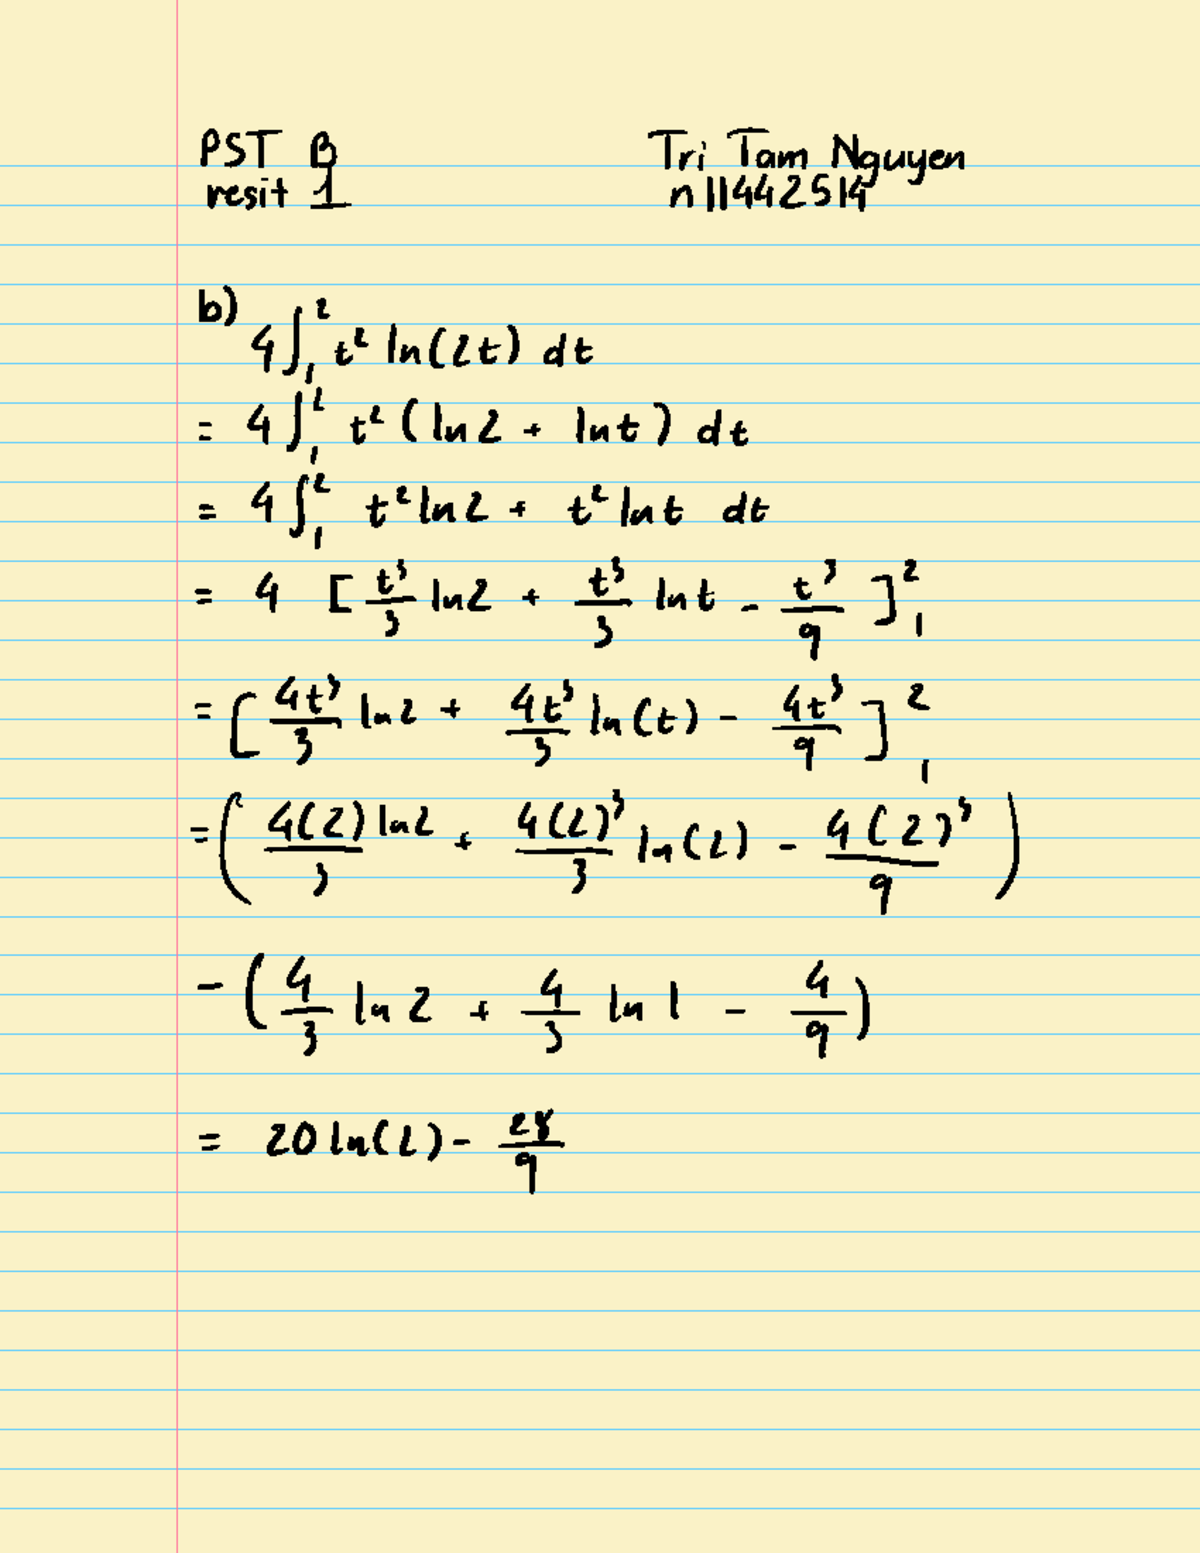 PST B
resit 1
Tri Tam Nguyen
n11442514
b)
4∫₁² t² ln(2t) dt
= 4∫₁² t² (ln2 + lnt) dt
= 4∫₁² t² ln2 + t² lnt dt
= 4 [t³/3 ln2 + t³/3 lnt - t³/9]₁²
= [4t³/3 ln2 + 4t³/3 ln(t) - 4t³/9]₁²
= (4(2)ln2/3 + 4(2)³/3 ln(2) - 4(2)³/9)
- (4/3 ln2 + 4/3 ln1 - 4/9)
= 20 ln(2) - 28/9